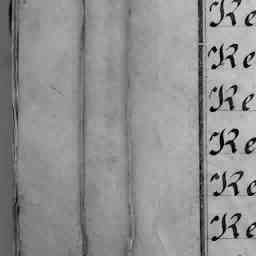 Re
Re
Re
Re
Re
Re